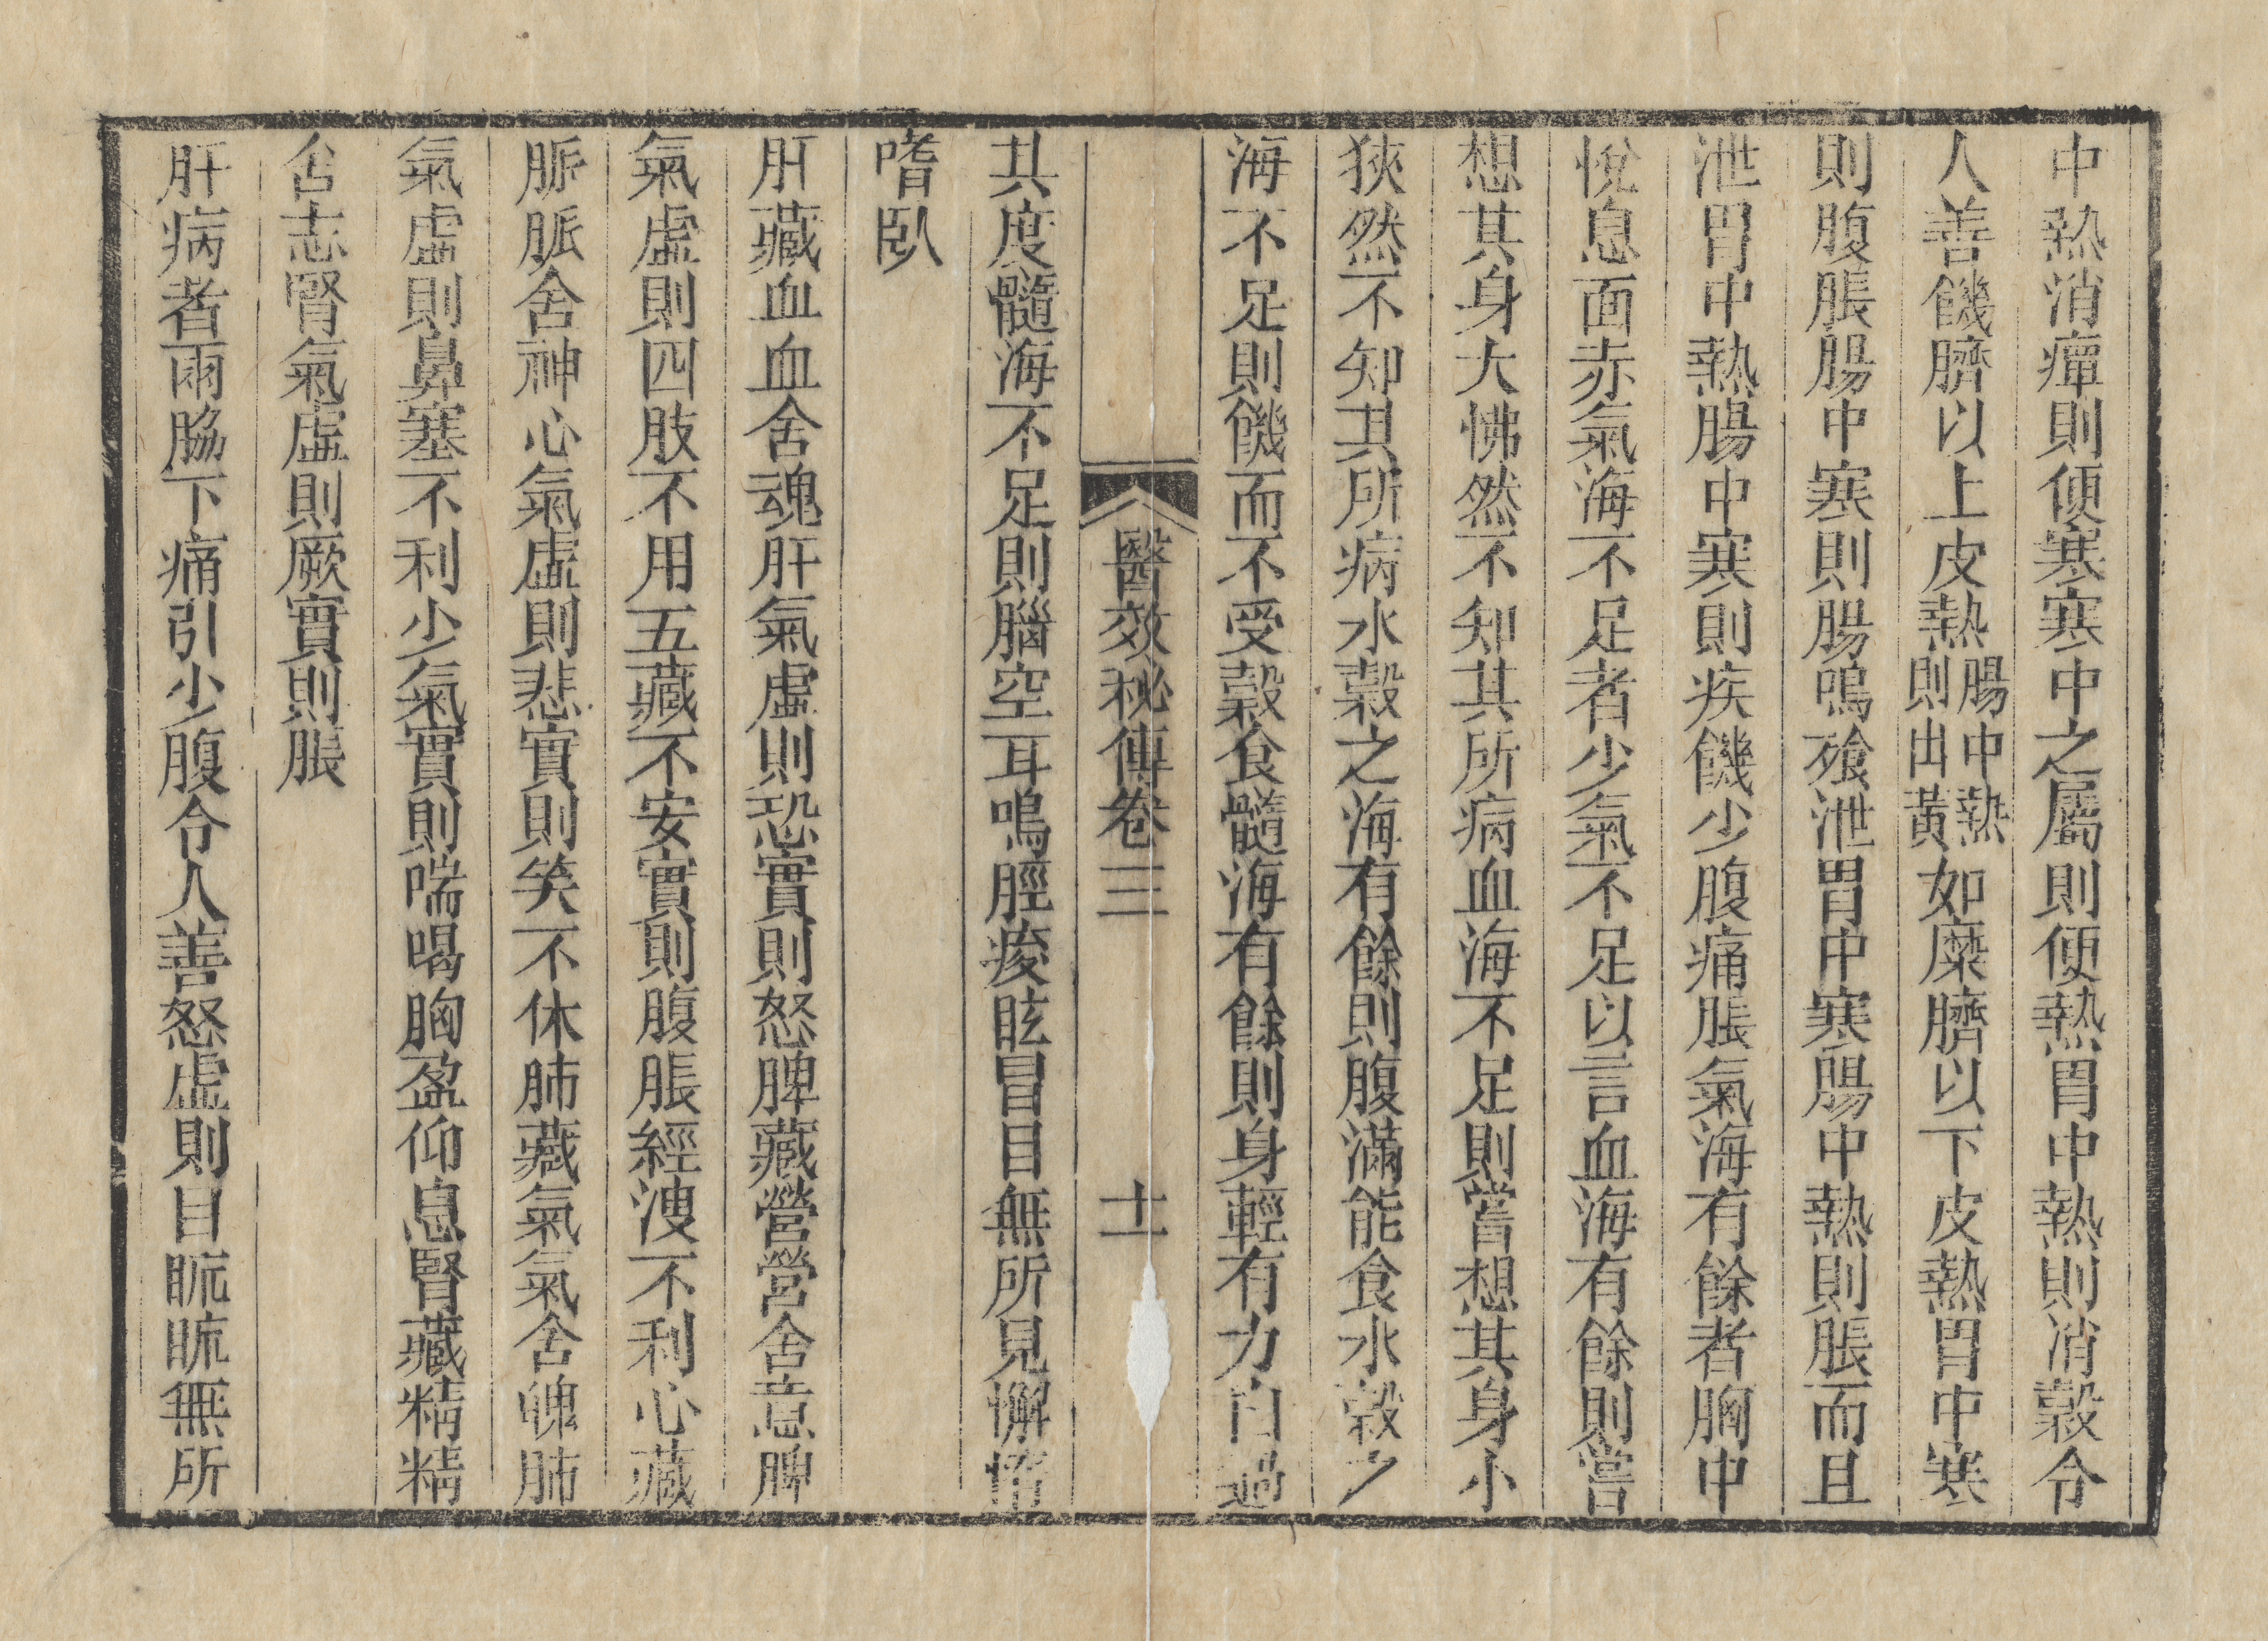 中熱消癉則便寒寒中之屬則便熱胃中熱則消穀令
人善饑臍以上皮熱腸中熱則出黃如糜臍以下皮熱胃中寒
則腹脹腸中寒則腸鳴飱泄胃中寒腸中熱則脹而且
泄胃中熱腸中寒則疾饑少腹痛脹氣海有餘者胸中
悅息面赤氣海不足者少氣不足以言血海有餘則嘗
想其身大怫然不知其所病血海不足則嘗想其身小
狹然不知其所病水穀之海有餘則腹滿能食水穀之
海不足則饑而不受穀食髓海有餘則身輕有力自過
醫效秘傳卷三
十一
其度髓海不足則腦空耳鳴脛痠眩冒目無所見懈惰
嗜臥
肝藏血血舍魂肝氣虛則恐實則怒脾藏營營舍意脾
氣虛則四肢不用五藏不安實則腹脹經洩不利心藏
脈脈舍神心氣虛則悲實則笑不休肺藏氣氣舍魄肺
氣虛則鼻塞不利少氣實則喘喝胸盈仰息腎藏精精
舍志腎氣虛則厥實則脹
肝病者兩脇下痛引少腹令人善怒虛則目䀮䀮無所